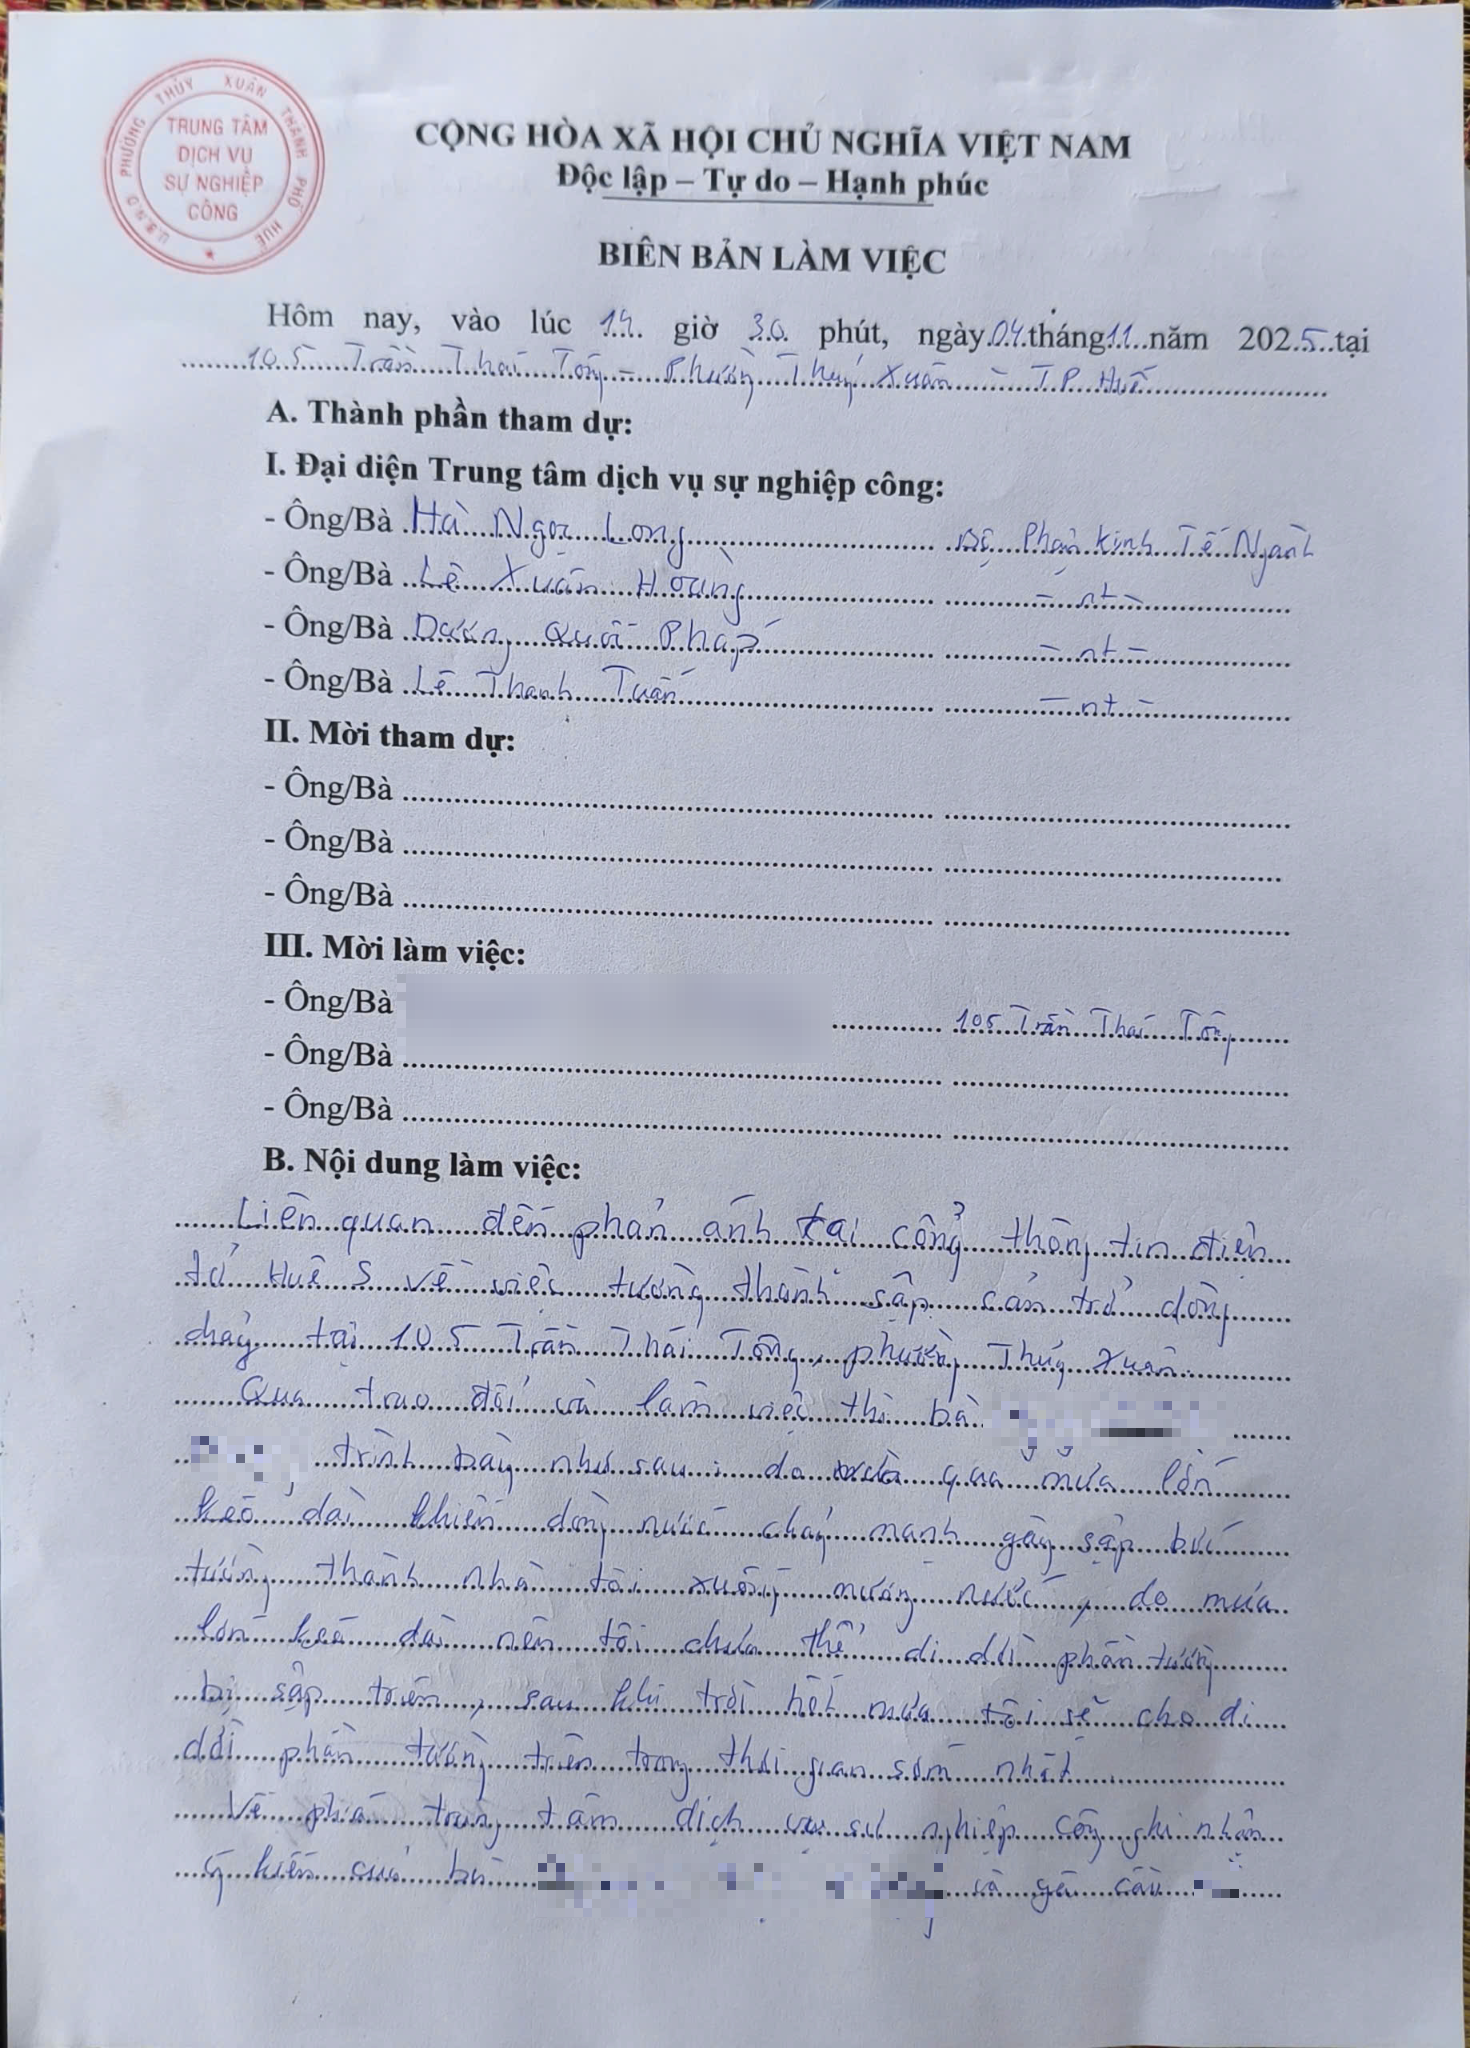 U.B.N.D PHƯỜNG THỦY XUÂN THÀNH PHỐ HUẾ
TRUNG TÂM
DỊCH VỤ
SỰ NGHIỆP
CÔNG
CỘNG HÒA XÃ HỘI CHỦ NGHĨA VIỆT NAM
Độc lập – Tự do – Hạnh phúc
BIÊN BẢN LÀM VIỆC
Hôm nay, vào lúc 14 giờ 30 phút, ngày 04 tháng 11 năm 2025 tại
105 Trần Thái Tông - Phường Thủy Xuân - TP Huế
A. Thành phần tham dự:
I. Đại diện Trung tâm dịch vụ sự nghiệp công:
- Ông/Bà Hà Ngọc Long Bộ Phận Kinh Tế Ngành
- Ông/Bà Lê Xuân Hoàng - nt -
- Ông/Bà Dương Quới Pháp - nt -
- Ông/Bà Lê Thanh Tuấn - nt -
II. Mời tham dự:
- Ông/Bà
- Ông/Bà
- Ông/Bà
III. Mời làm việc:
- Ông/Bà 105 Trần Thái Tông
- Ông/Bà
- Ông/Bà
B. Nội dung làm việc:
Liên quan đến phản ánh tại cổng thông tin điện
tử Huế S về việc tường thành sập cản trở dòng
chảy tại 105 Trần Thái Tông, phường Thủy Xuân
Qua trao đổi và làm việc thì bà
trình bày như sau: do vừa qua mưa lớn
kéo dài khiến dòng nước chảy mạnh gây sập bức
tường thành nhà tôi xuống mương nước, do mưa
lớn kéo dài nên tôi chưa thể di dời phần tường
bị sập trên, sau khi trời hết mưa tôi sẽ cho di
dời phần tường trên trong thời gian sớm nhất
Về phía trung tâm dịch vụ sự nghiệp công ghi nhận
ý kiến của bà và yêu cầu